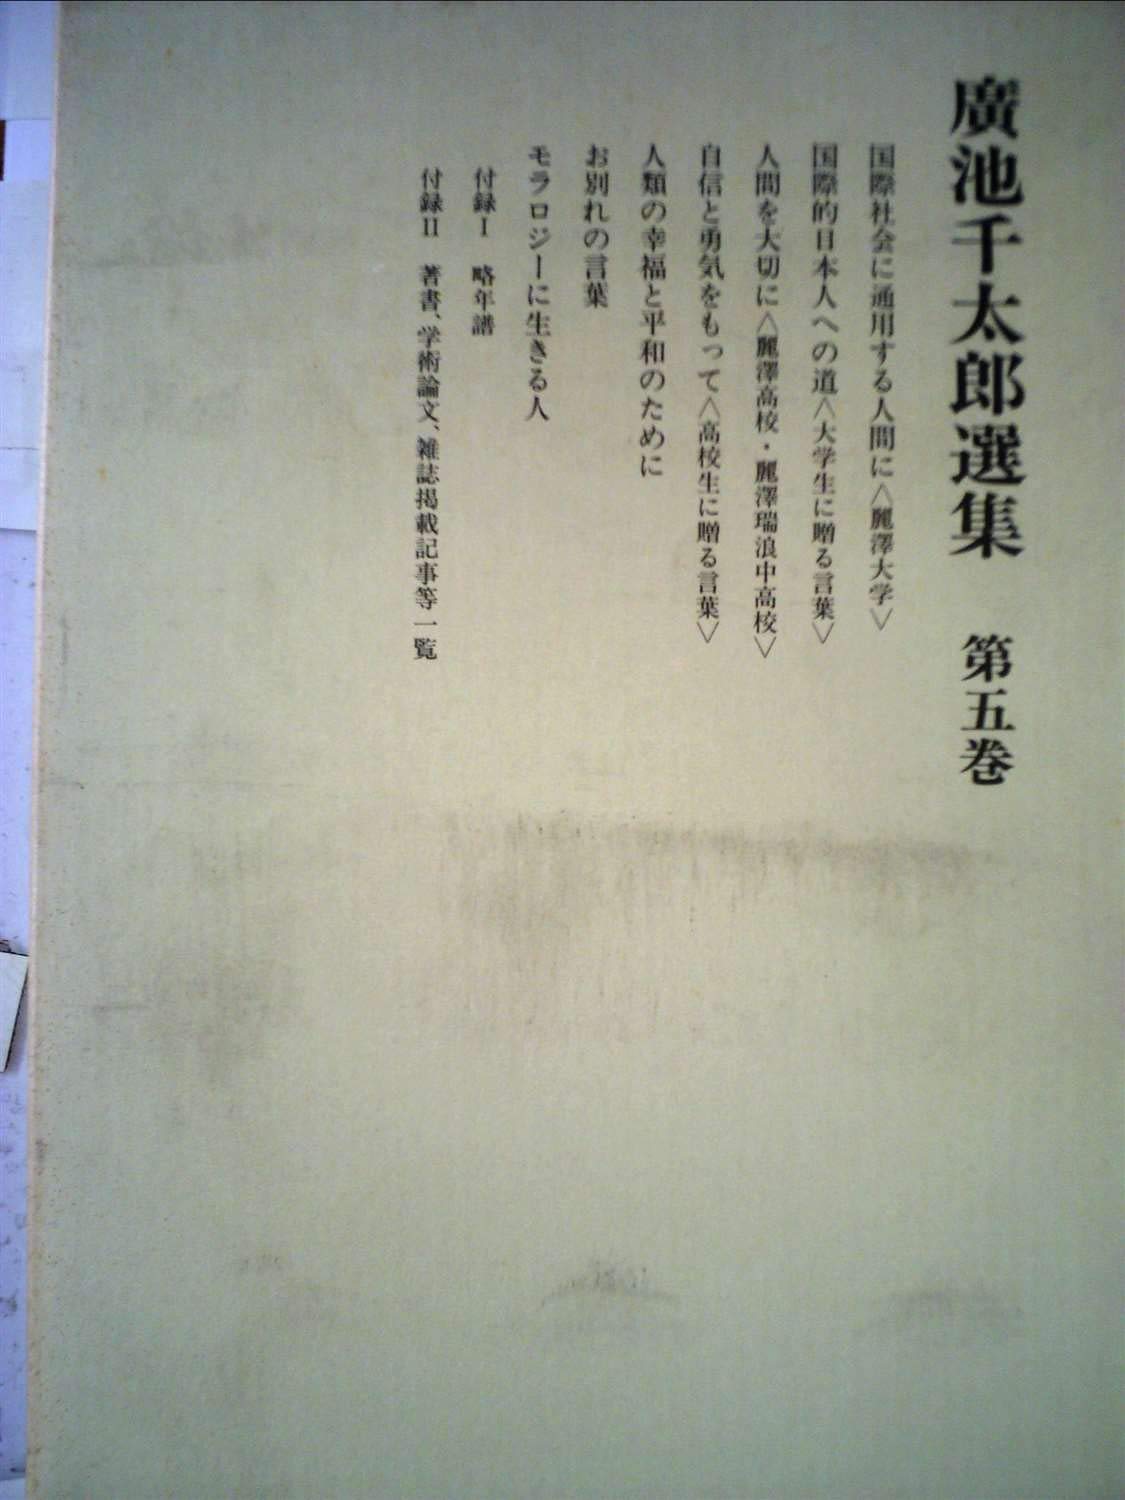 廣池千太郎選集　第五巻
国際社会に通用する人間に〈麗澤大学〉
国際的日本人への道〈大学生に贈る言葉〉
人間を大切に〈麗澤高校・麗澤瑞浪中高校〉
自信と勇気をもって〈高校生に贈る言葉〉
人類の幸福と平和のために
お別れの言葉
モラロジーに生きる人
付録Ⅰ　略年譜
付録Ⅱ　著書、学術論文、雑誌掲載記事等一覧